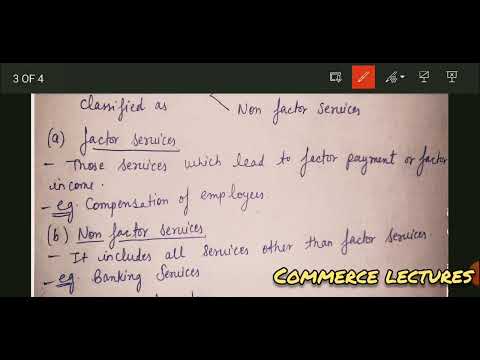 3 OF 4
classified as
Non factor services
(a) factor services
- Those services which lead to factor payment or factor
income.
- eg. Compensation of employees.
(b) Non factor services
- It includes all services other than factor services.
- eg. Banking Services
COMMERCE LECTURES